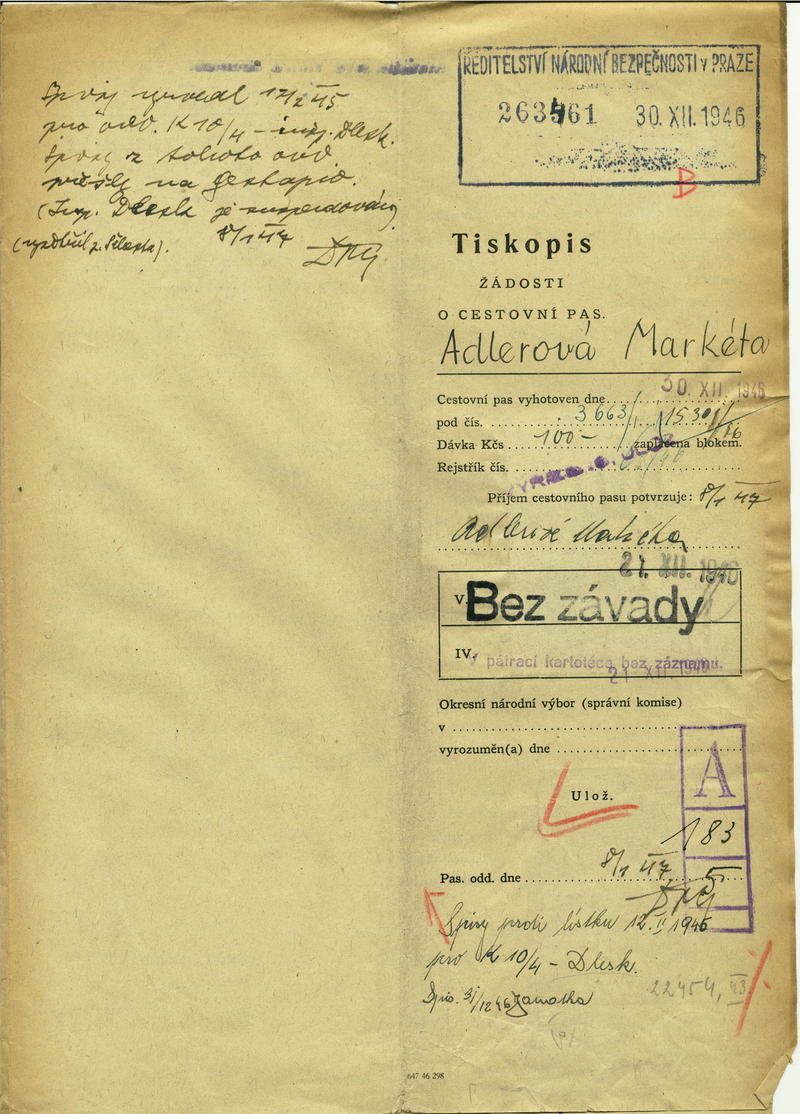 17/2 45
pro odd. K 10/4 – insp. Dlesk.
Spisy z tohoto odd.
přešly na gestapo.
(Insp. Dlesk je suspendován)
8/1 47
ŘEDITELSTVÍ NÁRODNÍ BEZPEČNOSTI v PRAZE
263461 30. XII. 1946
B
Tiskopis
ŽÁDOSTI
O CESTOVNÍ PAS.
Adlerová Markéta
Cestovní pas vyhotoven dne 30. XII. 1946
pod čís. 3663/
Dávka Kčs 100– zaplacena blokem.
Rejstřík čís.
Příjem cestovního pasu potvrzuje: 8/1 47
Adlerová Markéta
21. XII. 1946
V. Bez závady
IV. V pátrací kartotéce bez záznamu.
21 XII 1946
Okresní národní výbor (správní komise)
v
vyrozuměn(a) dne
A
Ulož.
183
5
Pas. odd. dne 8/1 47
Spisy proti lístku 12. II 1945
pro K 10/4 – Dlesk.
31/12 46
22454,
647 46 298